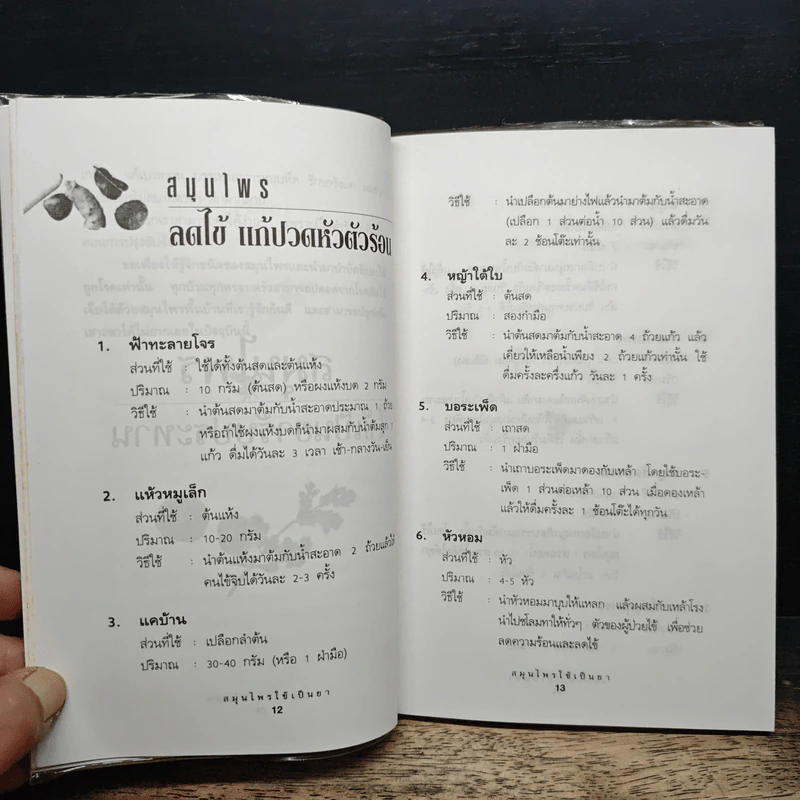 สมุนไพร
ลดไข้ แก้ปวดหัวตัวร้อน
1. ฟ้าทะลายโจร
ส่วนที่ใช้ : ใช้ได้ทั้งต้นสดและต้นแห้ง
ปริมาณ : 10 กรัม (ต้นสด) หรือผงแห้งบด 2 กรัม
วิธีใช้ : นำต้นสดมาต้มกับน้ำสะอาดประมาณ 1 ถ้วย
หรือถ้าใช้ผงแห้งบดก็นำมาผสมกับน้ำต้มสุก 1
แก้ว ดื่มได้วันละ 3 เวลา เช้า-กลางวัน-เย็น
2. แห้วหมูเล็ก
ส่วนที่ใช้ : ต้นแห้ง
ปริมาณ : 10-20 กรัม
วิธีใช้ : นำต้นแห้งมาต้มกับน้ำสะอาด 2 ถ้วยแล้วให้
คนไข้จิบได้วันละ 2-3 ครั้ง
3. แคบ้าน
ส่วนที่ใช้ : เปลือกลำต้น
ปริมาณ : 30-40 กรัม (หรือ 1 ฝ่ามือ)
สมุนไพรใช้เป็นยา
12
วิธีใช้ : นำเปลือกต้นมาย่างไฟแล้วนำมาต้มกับน้ำสะอาด
(เปลือก 1 ส่วนต่อน้ำ 10 ส่วน) แล้วดื่มวัน
ละ 2 ช้อนโต๊ะเท่านั้น
4. หญ้าใต้ใบ
ส่วนที่ใช้ : ต้นสด
ปริมาณ : สองกำมือ
วิธีใช้ : นำต้นสดมาต้มกับน้ำสะอาด 4 ถ้วยแก้ว แล้ว
เคี่ยวให้เหลือน้ำเพียง 2 ถ้วยแก้วเท่านั้น ใช้
ดื่มครั้งละครึ่งแก้ว วันละ 1 ครั้ง
5. บอระเพ็ด
ส่วนที่ใช้ : เถาสด
ปริมาณ : 1 ฝ่ามือ
วิธีใช้ : นำเถาบอระเพ็ดมาดองกับเหล้า โดยใช้บอระ-
เพ็ด 1 ส่วนต่อเหล้า 10 ส่วน เมื่อดองเหล้า
แล้วให้ดื่มครั้งละ 1 ช้อนโต๊ะได้ทุกวัน
6. หัวหอม
ส่วนที่ใช้ : หัว
ปริมาณ : 4-5 หัว
วิธีใช้ : นำหัวหอมมาบุบให้แหลก แล้วผสมกับเหล้าโรง
นำไปชโลมทาให้ทั่วๆ ตัวของผู้ป่วยไข้ เพื่อช่วย
ลดความร้อนและลดไข้
สมุนไพรใช้เป็นยา
13